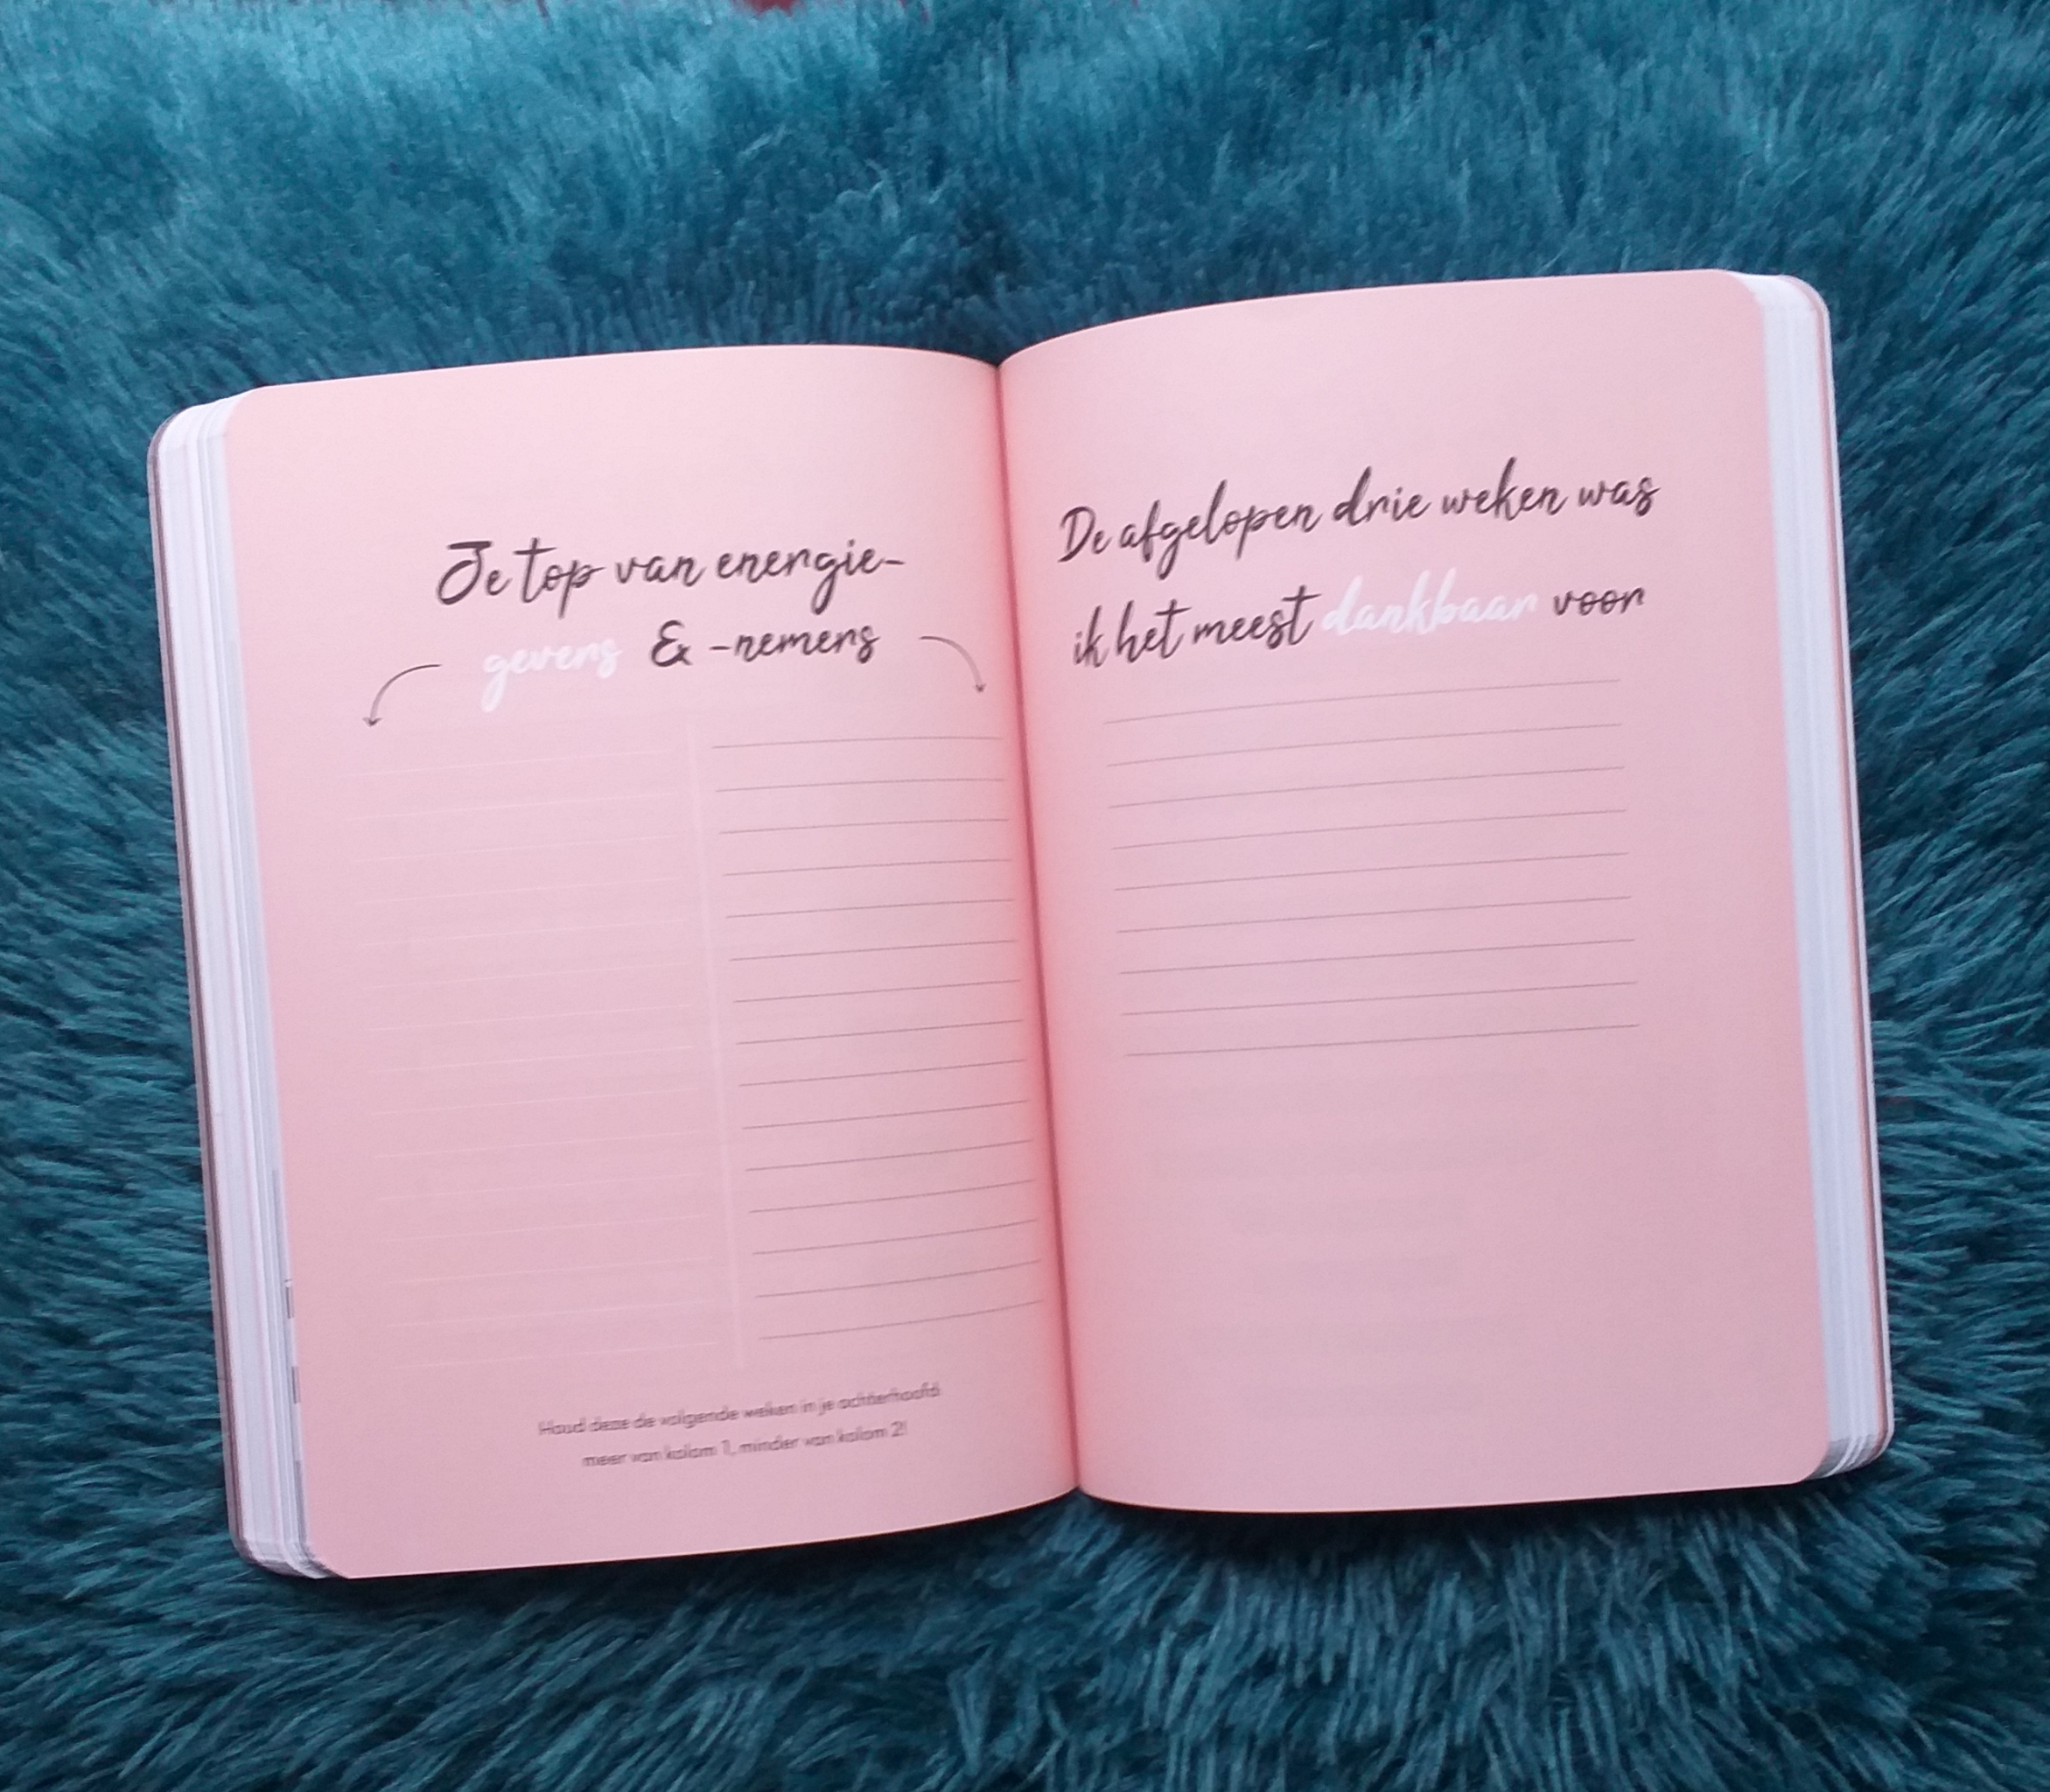 Je top van energie-
gevers & -nemers
Houd deze de volgende weken in je achterhoofd:
meer van kolom 1, minder van kolom 2!
De afgelopen drie weken was
ik het meest dankbaar voor